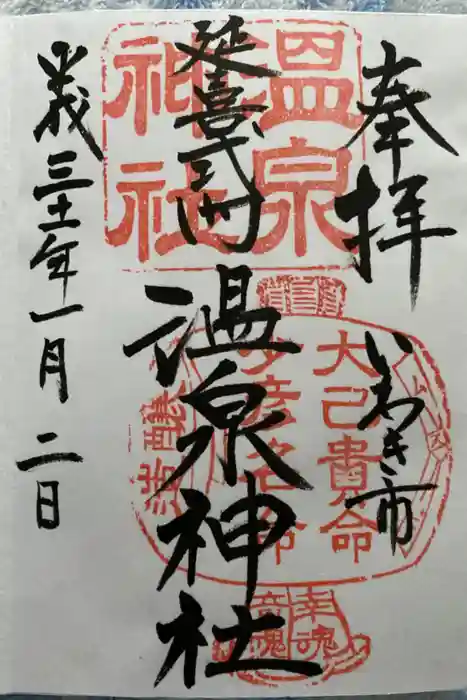 奉拝
いわき市
延喜式内
温泉神社
平成三十一年一月二日
温泉
神社
大己貴命
少彦名命
幸魂
奇魂